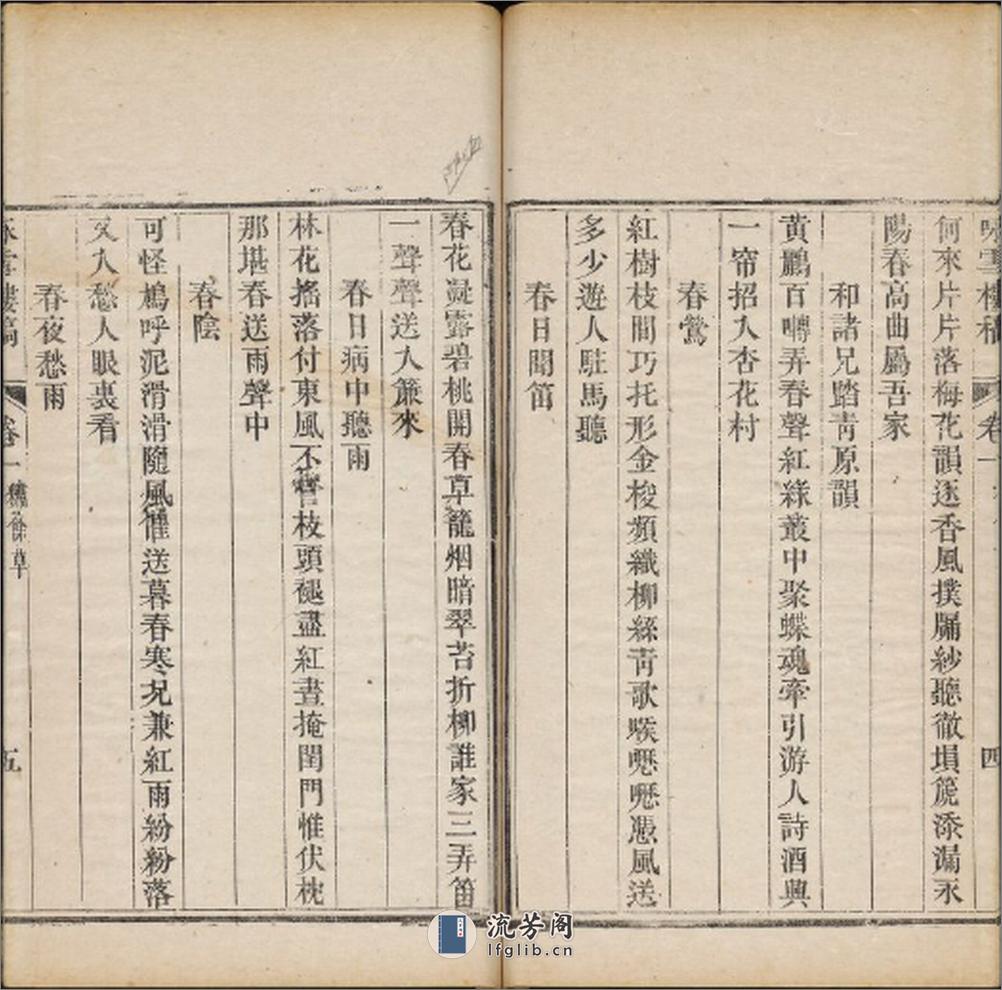 咏雪樓稿 卷一 四
何來片片落梅花韻逐香風撲牖紗聽徹塤箎添漏永
陽春高曲屬吾家
和諸兄踏靑原韻
黃鸝百囀弄春聲紅綠叢中聚蝶魂牽引游人詩酒興
一帘招入杏花村
春鶯
紅樹枝間巧托形金梭頻織柳絲靑歌喉嚦嚦憑風送
多少遊人駐馬聽
春日聞笛
春花凝露碧桃開春草籠烟暗翠苔折柳誰家三弄笛
一聲聲送入簾來
春日病中聽雨
林花搖落付東風不管枝頭褪盡紅晝掩閨門惟伏枕
那堪春送雨聲中
春陰
可怪鳩呼泥滑滑隨風催送暮春寒况兼紅雨紛紛落
又入愁人眼裏看
春夜愁雨
咏雪樓稿 卷一 繡餘草 五
流芳阁
lfglib.cn